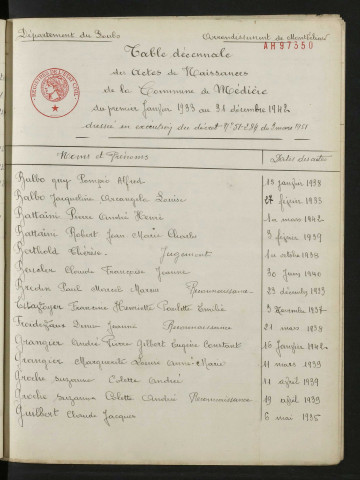 Département du Doubs Arrondissement de Montbéliard
AH97350
Table décennale
des Actes de Naissances
de la Commune de Médière
du premier Janvier 1933 au 31 décembre 1942
dressée en exécution du décret N° 51-284 du 3 mars 1951
Noms et Prénoms Dates des actes
Balbo Guy Pompée Alfred 13 janvier 1938
Balbo Jacqueline Arcangela Louise 27 février 1935
Battaïni Pierre André Henri 1er mars 1942
Battaïni Robert Jean Marie Charles 3 février 1939
Berthold Thérèse Jugement 1er octobre 1938
Claude Françoise Jeanne 30 juin 1940
Paul Marcel Reconnaissance 23 décembre 1939
Francine Henriette Paulette Emilie 3 1937
Jeanne Reconnaissance 21 mars 1938
Grangier André Pierre Gilbert Eugène Constant 16 janvier 1942
Grangier Marguerite Louise Anne-Marie 11 mars 1939
Groche Suzanne Colette Andrée 11 avril 1939
Groche Suzanne Colette Andrée Reconnaissance 19 avril 1939
Guilbert Claude Jacques 6 mai 1936